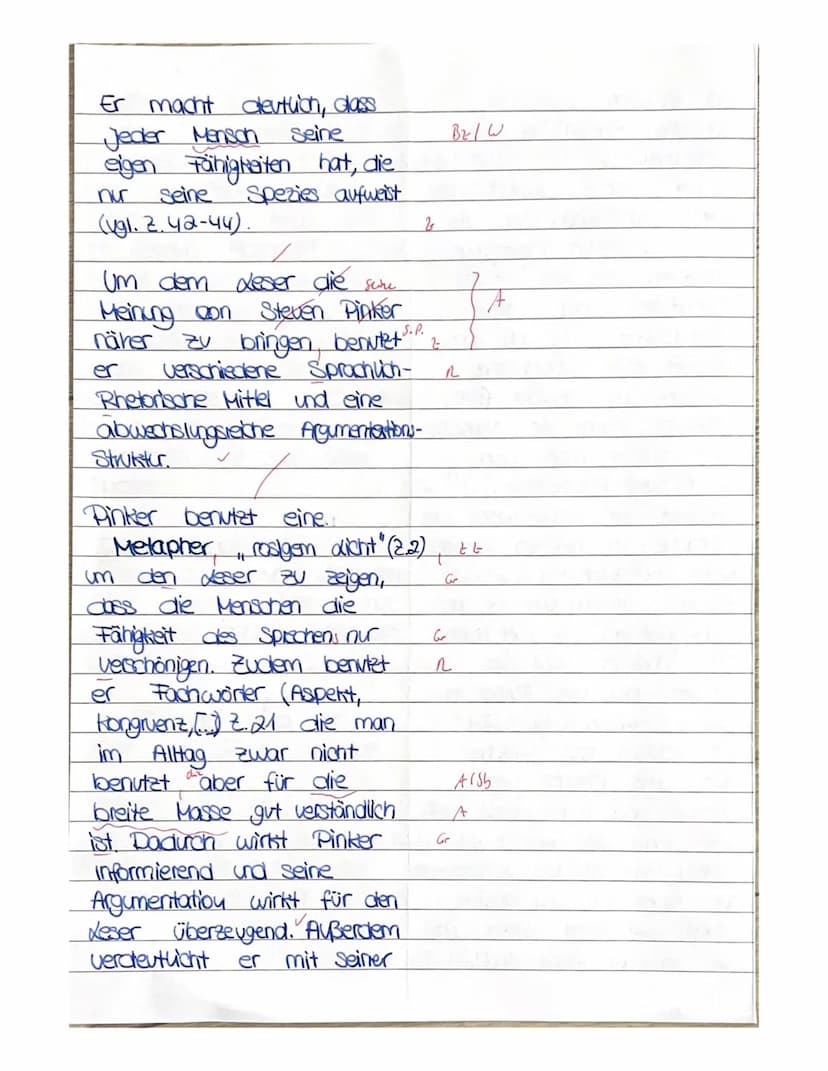 Er macht deutlich, dass
jeder Mensch seine Bz/W
eigen Fähigkeiten hat, die
nur seine Spezies aufweist
(vgl. Z. 42-44). Z
Um dem Leser die seine
Meinung von Steven Pinker A
näher zu bringen, benutzt S.P. Z
er verschiedene Sprachlich- R
Rhetorische Mittel und eine
abwechslungsreiche Argumentations-
Struktur. ✓
Pinker benutzt eine
Metapher, „rosigem Licht" (Z.2),
um den Leser zu zeigen, Gr
dass die Menschen die
Fähigkeit des Sprechens nur Gr
verschönigen. Zudem benutzt R
er Fachwörter (Aspekt,
Kongruenz,[..]) Z.21 die man
im Alltag zwar nicht
benutzt, die aber für die A/Sb
breite Masse gut verständlich A
ist. Dadurch wirkt Pinker Gr
informierend und seine
Argumentation wirkt für den
Leser überzeugend. ✓ Außerdem
verdeutlicht er mit seiner